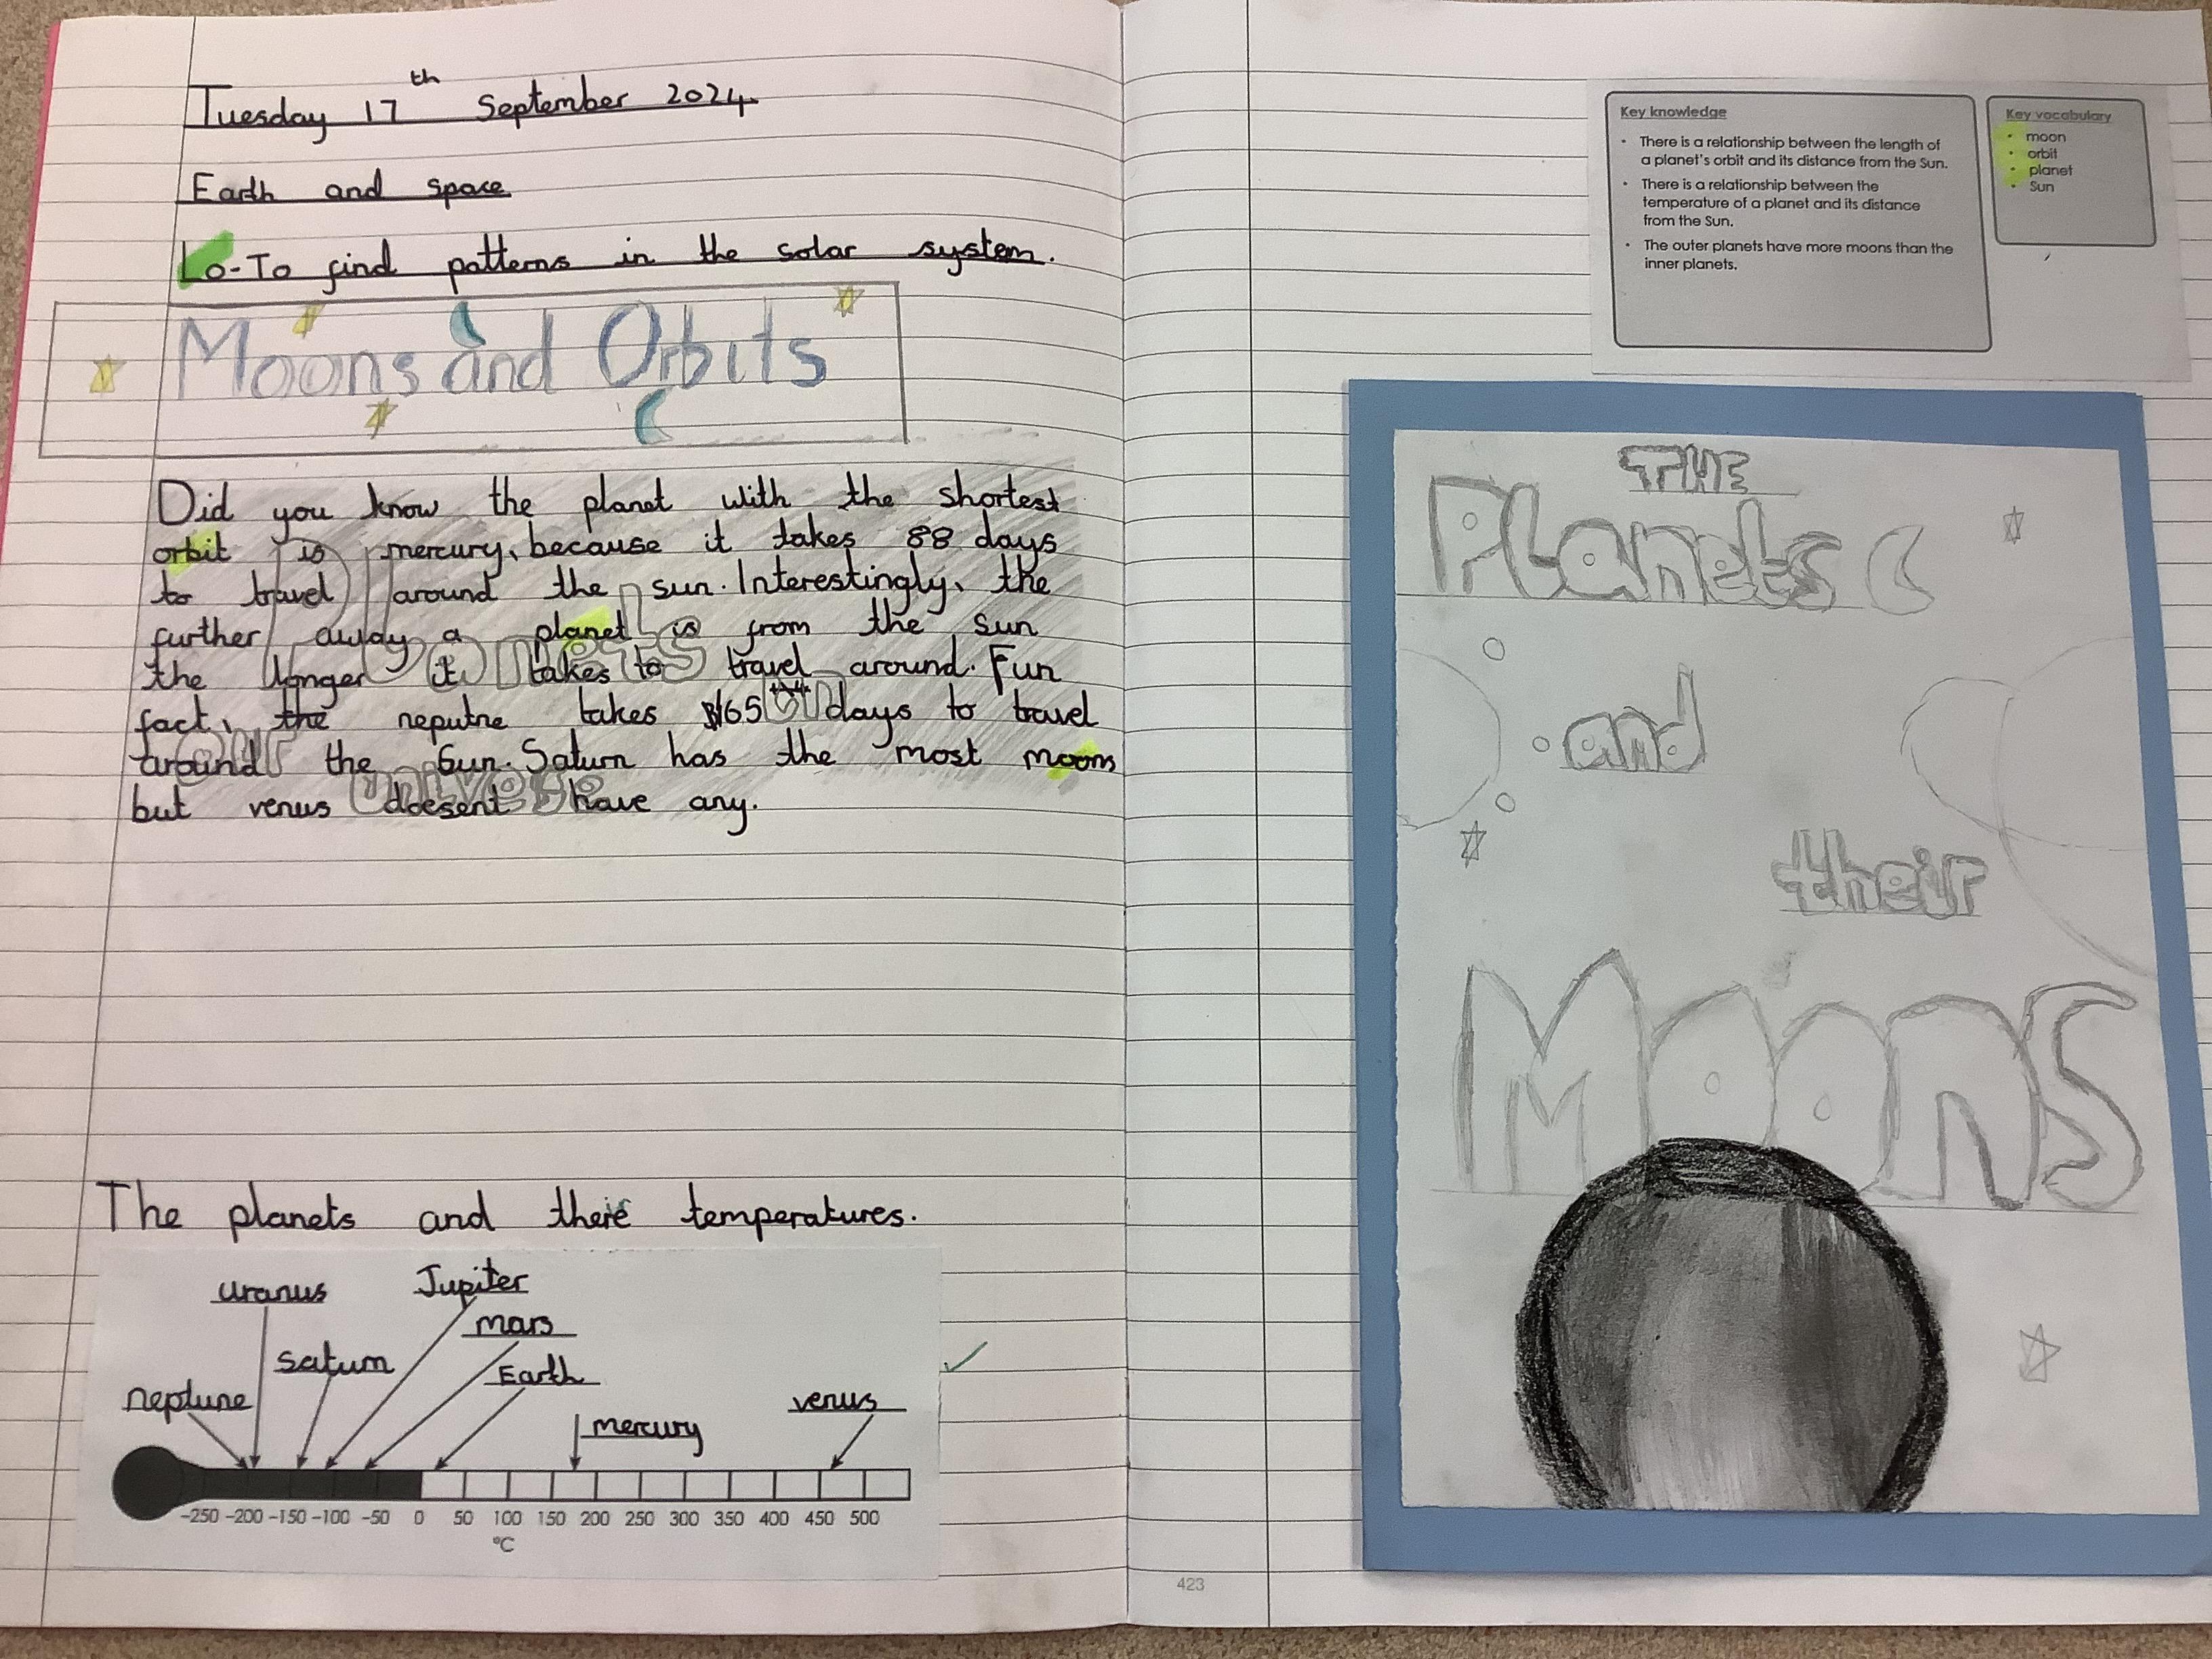 Tuesday 17th September 2024
Earth and space
Lo-To find patterns in the solar system.
Moons and Orbits
Did you know the planet with the shortest
orbit is mercury, because it takes 88 days
to travel around the sun. Interestingly, the
further away a planet is from the sun
the longer it takes to travel around. Fun
fact, the neputne takes 165 days to travel
around the Sun. Saturn has the most moons
but venus doesent have any.
The planets and their temperatures.
uranus
Jupiter
mars
saturn
Earth
neptune
venus
mercury
-250 -200 -150 -100 -50 0 50 100 150 200 250 300 350 400 450 500
°C
Key knowledge
• There is a relationship between the length of
a planet's orbit and its distance from the Sun.
• There is a relationship between the
temperature of a planet and its distance
from the Sun.
• The outer planets have more moons than the
inner planets.
Key vocabulary
• moon
• orbit
• planet
• Sun
THE
PLanets
and
their
MOONS
423